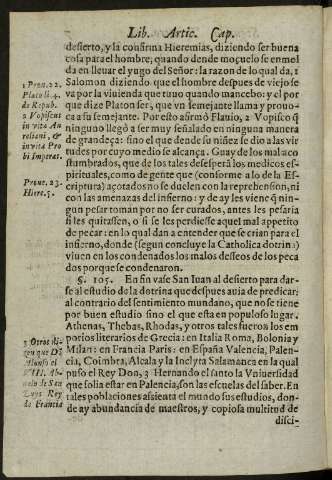 Lib. Artic. Cap.
desierto, y la confirma Hieremias, diziendo ser buena
cosa para el hombre, quando dende moçuelo se enmel
da en lleuar el yugo del Señor: la razon de lo qual da, 1
Salomon diziendo que el hombre despues de viejo se
va por la viuienda que tuuo quando mancebo: y el por
que dize Platon ser, que vn semejante llama y prouo-
ca a su semejante. Por esto afirmò Flauio, 2 Vopisco q̃
ninguno llegò a ser muy señalado en ninguna manera
de grandeça: sino el que dende su niñez se dio a las vir
tudes por cuyo medio se alcança. Guay de los malaco
stumbrados, que de los tales desesperã los medicos es-
pirituales, como de gente que (conforme a lo de la Es-
criptura) açotados no se duelen con la reprehension, ni
con las amenazas del infierno: y de ay les viene q̃ nin-
gun pesar toman por no ser curados, antes les pesaria
si les quitassen, o si se les perdiesse aquel mal appetito
de pecar: en lo qual dan a entender que se crian para el
infierno, donde (segun concluye la Catholica dotrina)
viuen en los condenados los malos desseos de los peca
dos porque se condenaron.
§. 105. En fin vase San Iuan al desierto para dar-
se al estudio de la dotrina que despues auia de predicar:
al contrario del sentimiento mundano, que no se tiene
por buen estudio sino el que esta en populoso lugar.
Athenas, Thebas, Rhodas, y otros tales fueron los em
porios literarios de Grecia: en Italia Roma, Bolonia y
Milan: en Francia Paris: en España Valencia, Palen-
cia, Coimbra, Alcala y la Inclyta Salamanca en la qual
puso el Rey Don, 3 Hernando el santo la Vniuersidad
que solia estar en Palencia, son las escuelas del saber. En
tales poblaciones assienta el mundo sus estudios, don-
de ay abundancia de maestros, y copiosa multitud de
disci-
1 Prou. 22.
Plato li. 4.
de Repub.
2 Vopiscus
in vita Au
reliani, &
in vita Pro
bi Imperat.
Proue. 23.
Hiere. 5.
3 Otros di-
zen que Dō
Alonso el
VIII. Abue
lo de San
Luys Rey
de Francia